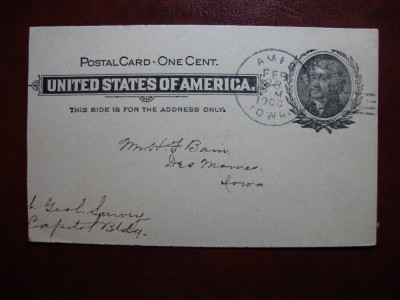 POSTAL CARD - ONE CENT.
UNITED STATES OF AMERICA.
THIS SIDE IS FOR THE ADDRESS ONLY.
AME
FEB
M
1900
IOWA
H F Bain,
Des Moines
Iowa
Geol. Survey
Capitol Bldg.